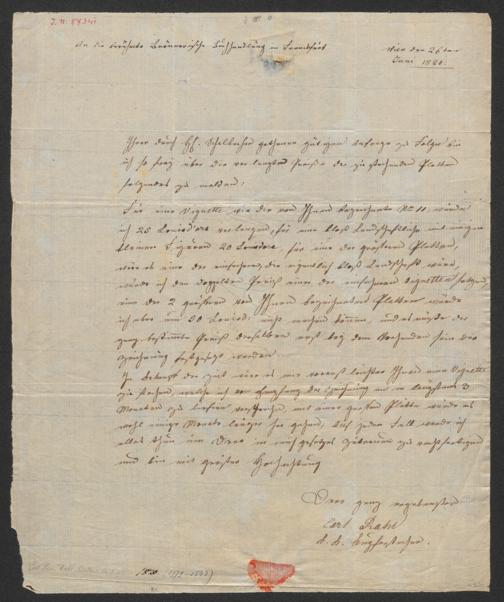 J.N. 88341
An die berühmte Brönnerische Buchhandlung in Frankfurt
Wien den 26ten
Juni 1820.
Ihrer durch H. gethanen gütigen Anfrage zu Folge bin
ich so frey über die verlangten Preise der zu stechenden Platten
folgendes zu melden:
Für eine Vignette, wie die von Ihnen bezeichnete No 11, würde
ich 25 Louisd'ors verlangen, für eine bloß Landschaftliche mit einigen
kleinen Figuren 20 Louisdor, für eine der größern Platten,
wäre es eine der einfachern, die eigentlich bloß Landschaft wäre,
würde ich den doppelten Preiß einer der einfachern Vignetten setzen,
eine der 2 größern von Ihnen bezeichneten Platten würde
ich aber um 90 Louisd. nicht machen können, und es müßte der
ganz bestimmte Preiß derselben erst bey dem Vorhandensein der
Zeichnung festgesetzt werden.
In Betreff der Zeit wäre es mir Ihnen eine Vignette
zu stechen, welche ich von Empfang der Zeichnung an in längstens 3
Monaten zu liefern verspreche, mit einer großen Platte würde es
wohl einige Monate länger her gehen, auf jeden Fall werde ich
alles thun um Ihr in mich gesetztes Zutrauen zu rechtfertigen
und bin mit größter Hochachtung
Dero ganz ergebenster
Carl Rahl
k. k. Kupferstecher.
(1779-1843)